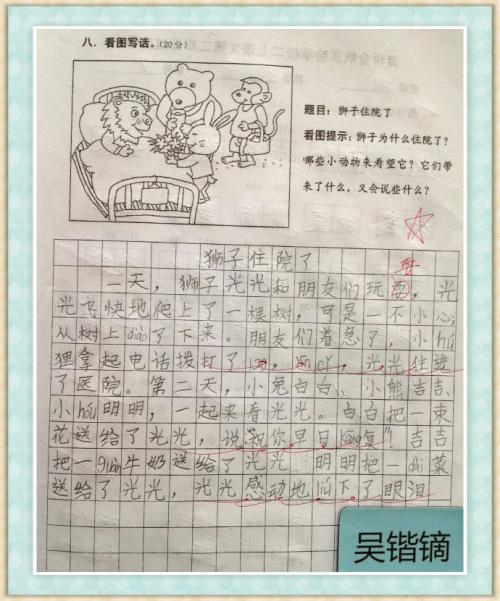 八、看图写话。（20分）
题目：狮子住院了
看图提示：狮子为什么住院了？
哪些小动物来看望它？它们带
来了什么，又会说些什么？
狮子住院了
一天，狮子光光和朋友们玩耍，光
光飞快地爬上了一棵树，可是一不小心，
从树上diào了下来。朋友们着急了，小hú
狸拿起电话拨打了120，光光住进
了医院。第二天，小兔白白、小熊吉吉、
小hóu明明，一起来看光光。白白把一束
花送给了光光，说祝你早日kāng复！吉吉
把一guàn牛奶送给了光光，明明把一dài菜
送给了光光，光光感动地liú下了眼泪
吴锴镝